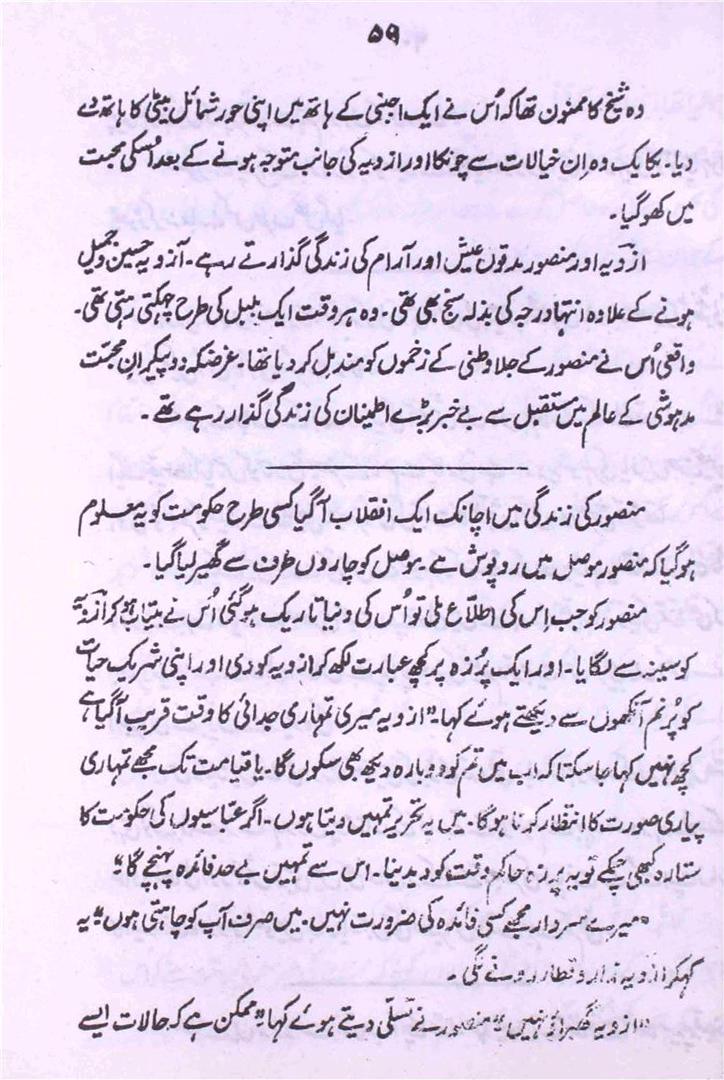 ۵۹
وہ شیخ کا ممنون تھا کہ اُس نے ایک اجنبی کے ہاتھ میں اپنی حور شمائل بیٹی کا ہاتھ دے
دیا۔ یکایک وہ اِن خیالات سے چونکا اور ازویہ کی جانب متوجہ ہونے کے بعد اُسکی محبت
میں کھو گیا۔
ازویہ اور منصور مدتوں عیش اور آرام کی زندگی گذارتے رہے۔ آزویہ حسین و جمیل
ہونے کے علاوہ انتہا درجہ کی بذلہ سنج بھی تھی۔ وہ ہر وقت ایک بلبل کی طرح چہکتی رہتی تھی۔
واقعی اُس نے منصور کے جلا وطنی کے زخموں کو مندمل کر دیا تھا۔ غرضکہ دو پیکرانِ محبّت
مدہوشی کے عالم میں مستقبل سے بے خبر بڑے اطینان کی زندگی گذار رہے تھے۔
منصور کی زندگی میں اچانک ایک انقلاب آگیا کسی طرح حکومت کو یہ معلوم
ہو گیا کہ منصور موصل میں روپوش ہے۔ موصل کو چاروں طرف سے گھیر لیا گیا۔
منصور کو جب اِس کی اطلاع ملی تو اُس کی دنیا تاریک ہو گئی اُس نے بیتاب ہو کر ازویہ
کو سینہ سے لگایا۔ اور ایک پُرزہ پر کچھ عبارت لکھ کر ازویہ کو دی اور اپنی شریک حیات
کو پُر نم آنکھوں سے دیکھتے ہوئے کہا۔ "ازویہ میری تمہاری جدائی کا وقت قریب آگیا ہے
کچھ نہیں کہا جا سکتا کہ اب میں تم کو دوبارہ دیکھ بھی سکوں گا۔ یا قیامت تک مجھے تمہاری
پیاری صورت کا انتظار کرنا ہوگا۔ میں یہ تحریر تمہیں دیتا ہوں۔ اگر عباسیوں کی حکومت کا
ستارہ کبھی چمکے تو یہ پرزہ حاکم وقت کو دیدینا۔ اس سے تمہیں بے حد فائدہ پہنچے گا"
"میرے سردار مجھے کسی فائدہ کی ضرورت نہیں۔ میں صرف آپ کو چاہتی ہوں" یہ
کہکر ازویہ زار و قطار رونے لگی۔
"ازویہ گھبراؤ نہیں" منصور نے تسلّی دیتے ہوئے کہا "ممکن ہے کہ حالات ایسے